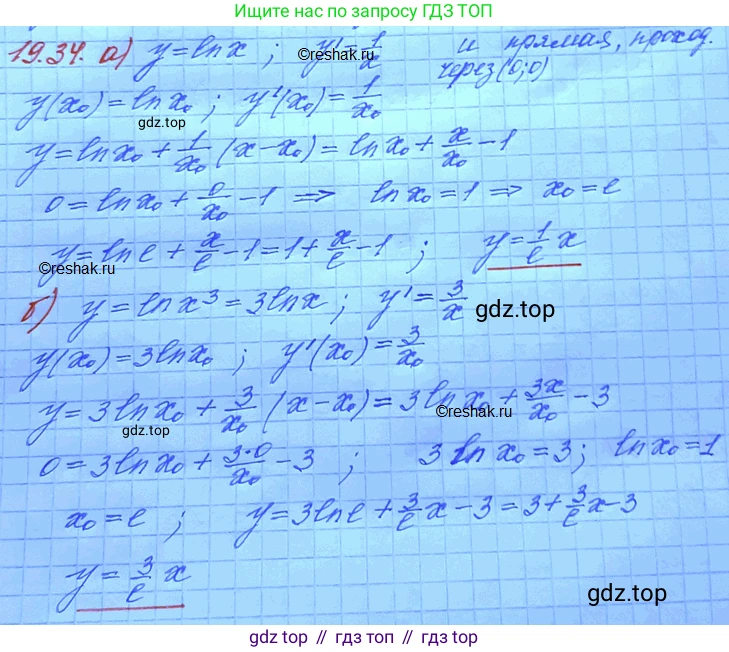 Ищите нас по запросу ГДЗ ТОП
19.34. а) y = ln x ; y' = 1/x и прямая, проход.
через (0;0)
y(x₀) = ln x₀ ; y'(x₀) = 1/x₀
gdz.top
y = ln x₀ + 1/x₀ (x - x₀) = ln x₀ + x/x₀ - 1
0 = ln x₀ + 0/x₀ - 1 ⇒ ln x₀ = 1 ⇒ x₀ = e
y = ln e + x/e - 1 = 1 + x/e - 1 ; y = 1/e x
©reshak.ru
©reshak.ru
б) y = ln x³ = 3 ln x ; y' = 3/x
gdz.top
y(x₀) = 3 ln x₀ ; y'(x₀) = 3/x₀
y = 3 ln x₀ + 3/x₀ (x - x₀) = 3 ln x₀ + 3x/x₀ - 3
©reshak.ru
gdz.top
0 = 3 ln x₀ + 3·0/x₀ - 3 ; 3 ln x₀ = 3 ; ln x₀ = 1
x₀ = e ; y = 3 ln e + 3/e x - 3 = 3 + 3/e x - 3
y = 3/e x
gdz.top
gdz.top // гдз топ // gdz.top